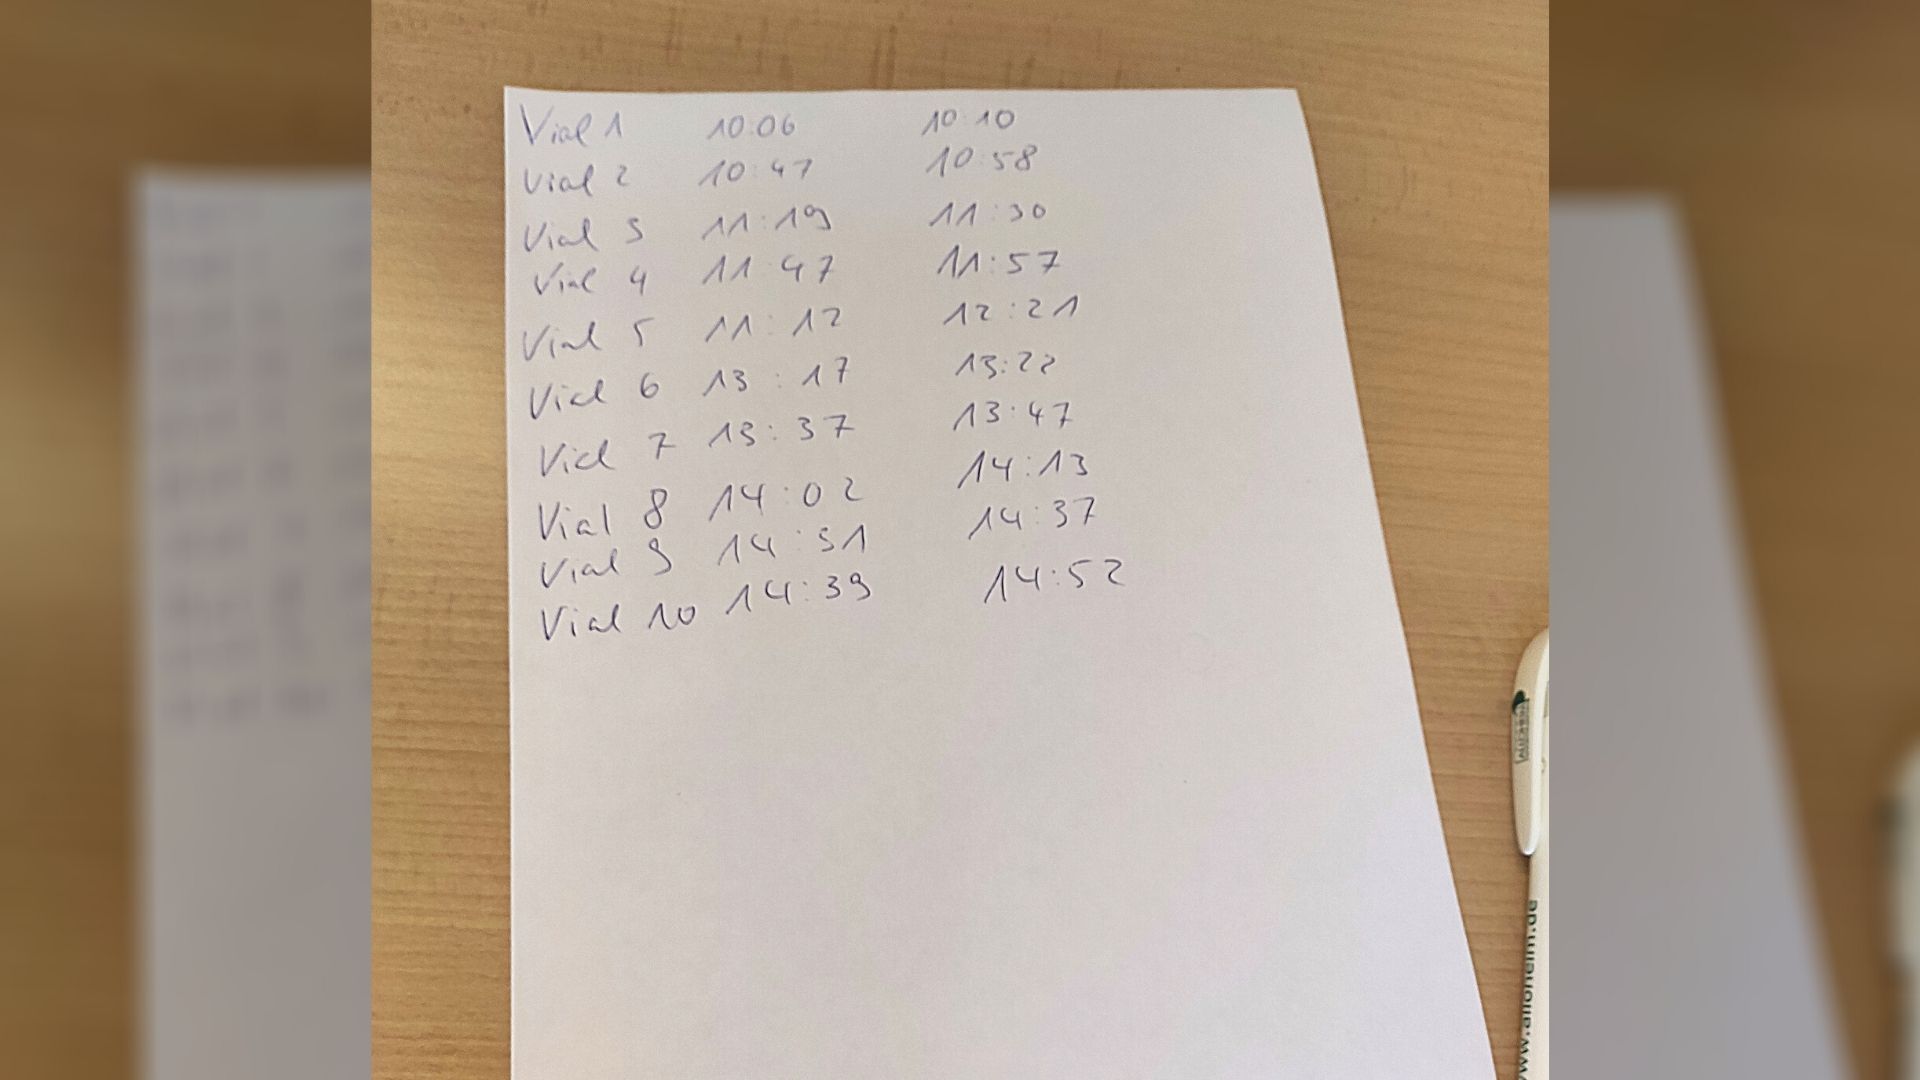 Vial 1 10:06 10:10
Vial 2 10:47 10:58
Vial 3 11:19 11:30
Vial 4 11:47 11:57
Vial 5 11:12 12:21
Vial 6 13:17 13:22
Vial 7 13:37 13:47
Vial 8 14:02 14:13
Vial 9 14:31 14:37
Vial 10 14:39 14:52
www.alloheim.de